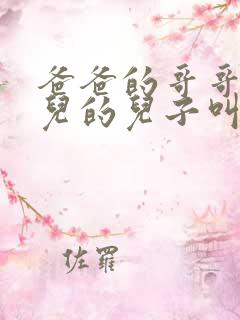 爸爸的哥哥
兒的兒子叫
佐羅